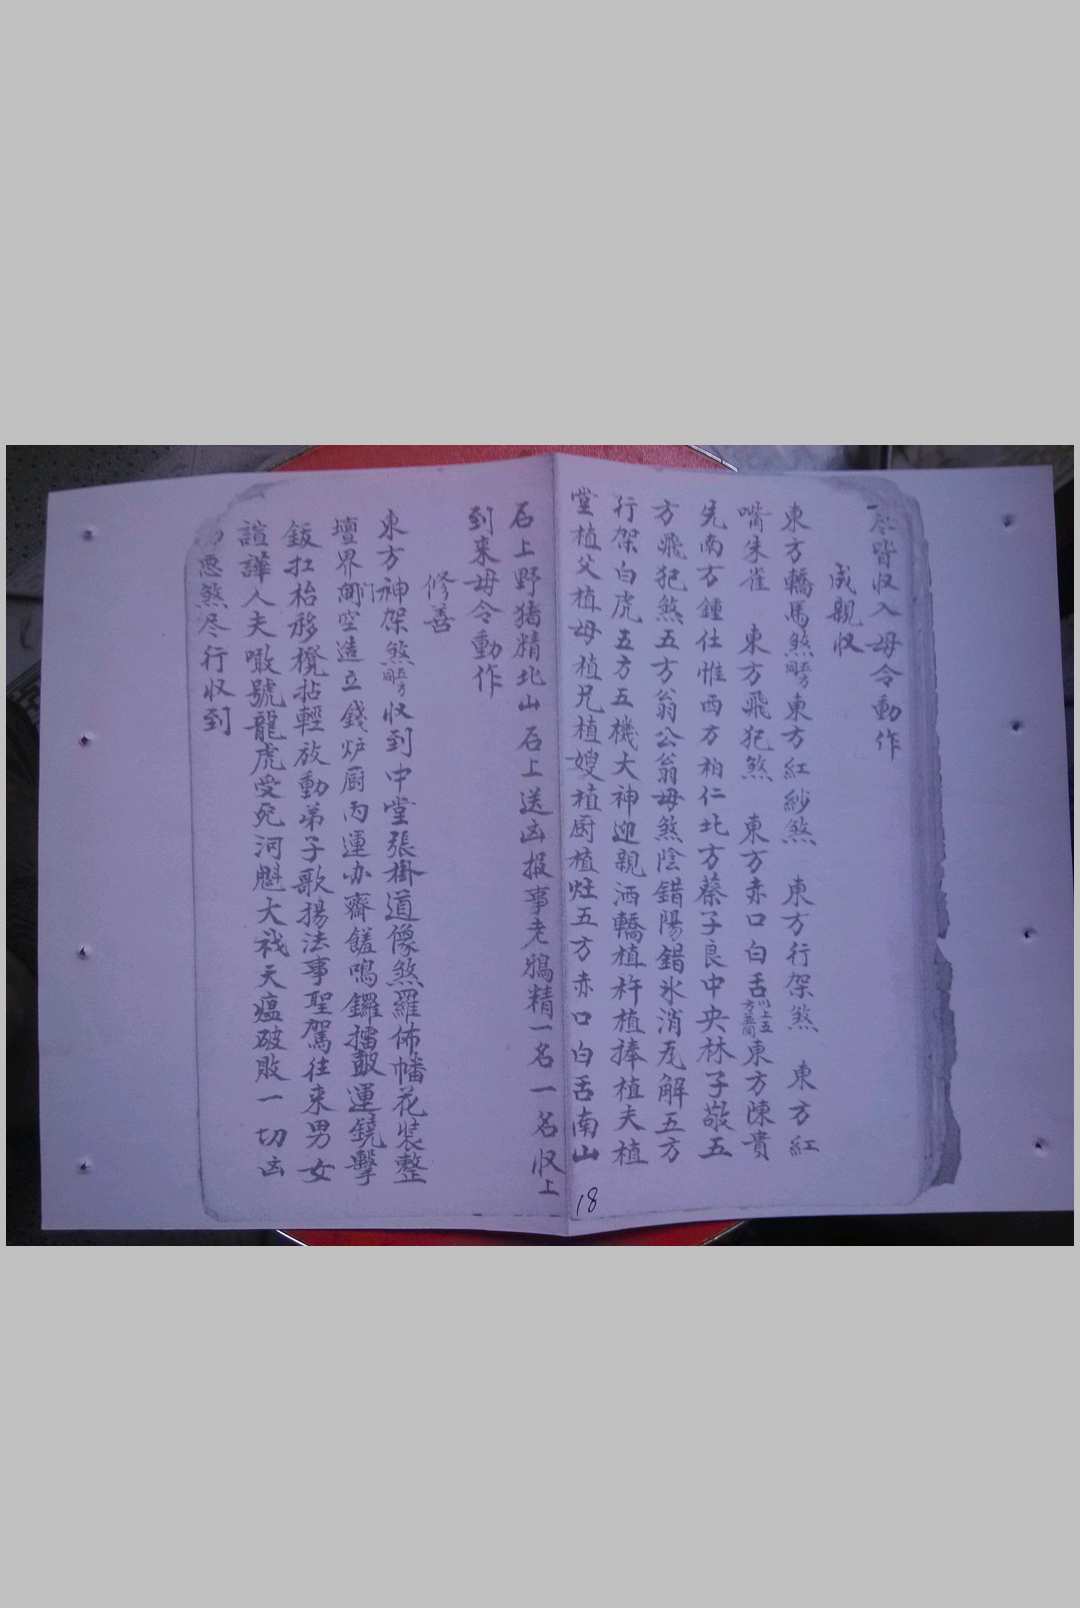 皆收入毋令動作
成親收
東方轎馬煞五方同東方紅紗煞 東方行架煞 東方紅
嘴朱雀 東方飛犯煞 東方赤口白舌以上五方同東方陳貴
先南方鍾仕惟西方柏仁北方蔡子良中央林子敬五
方飛犯煞五方翁公翁母煞陰錯陽錯氷消瓦解五方
行架白虎五方五機大神迎親洒轎植杵植捧植夫植
堂植父植母植兄植嫂植厨植灶五方赤口白舌南山
18
石上野猪精北山石上送凶报事老鴉精一名一名收上
到来毋令動作
修善
東方神架煞五方同收到中堂張掛道像煞羅佈幡花裝整
壇界空造立錢炉厨丙運办齋饈鳴鑼擂皷運鐃擊
鈸扛枱移櫈拈輕放動弟子歌揚法事聖駕往来男女
諠譁人夫噉號龍虎受死河魁大禍天瘟破敗一切凶
惡煞尽行收到